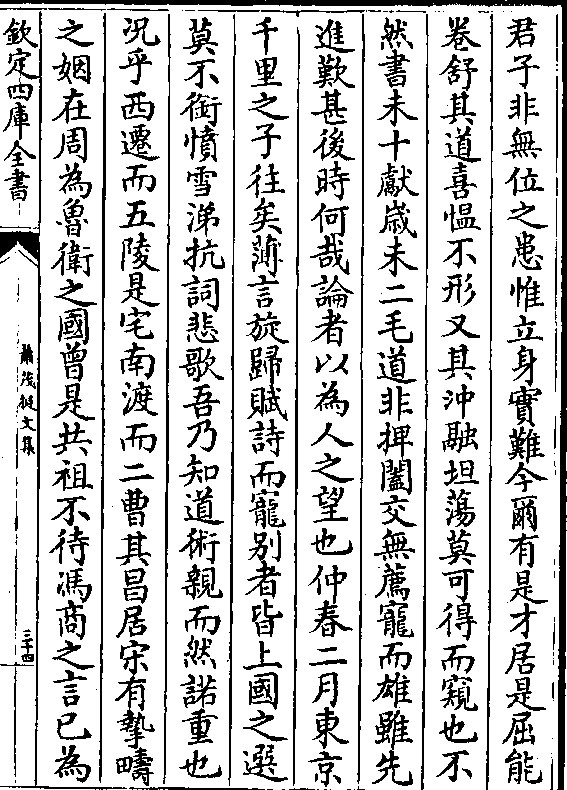 君子非無位之患惟立身實難今爾有是才居是屈能
卷舒其道喜愠不形又其沖融坦蕩莫可得而窺也不
然書未十獻歳未二毛道非捭闔交無薦寵而雄雖先
進歎甚後時何哉論者以為人之望也仲春二月東京
千里之子往矣薄言旋歸賦詩而寵别者皆上國之選
莫不銜憤雪涕抗詞悲歌吾乃知道術親而然諾重也
况乎西遷而五陵是宅南渡而二曹其昌居宋有摯疇
之姻在周為魯衛之國曾是共祖不待馮商之言已為
欽定四庫全書
蕭茂挺文集
三十四